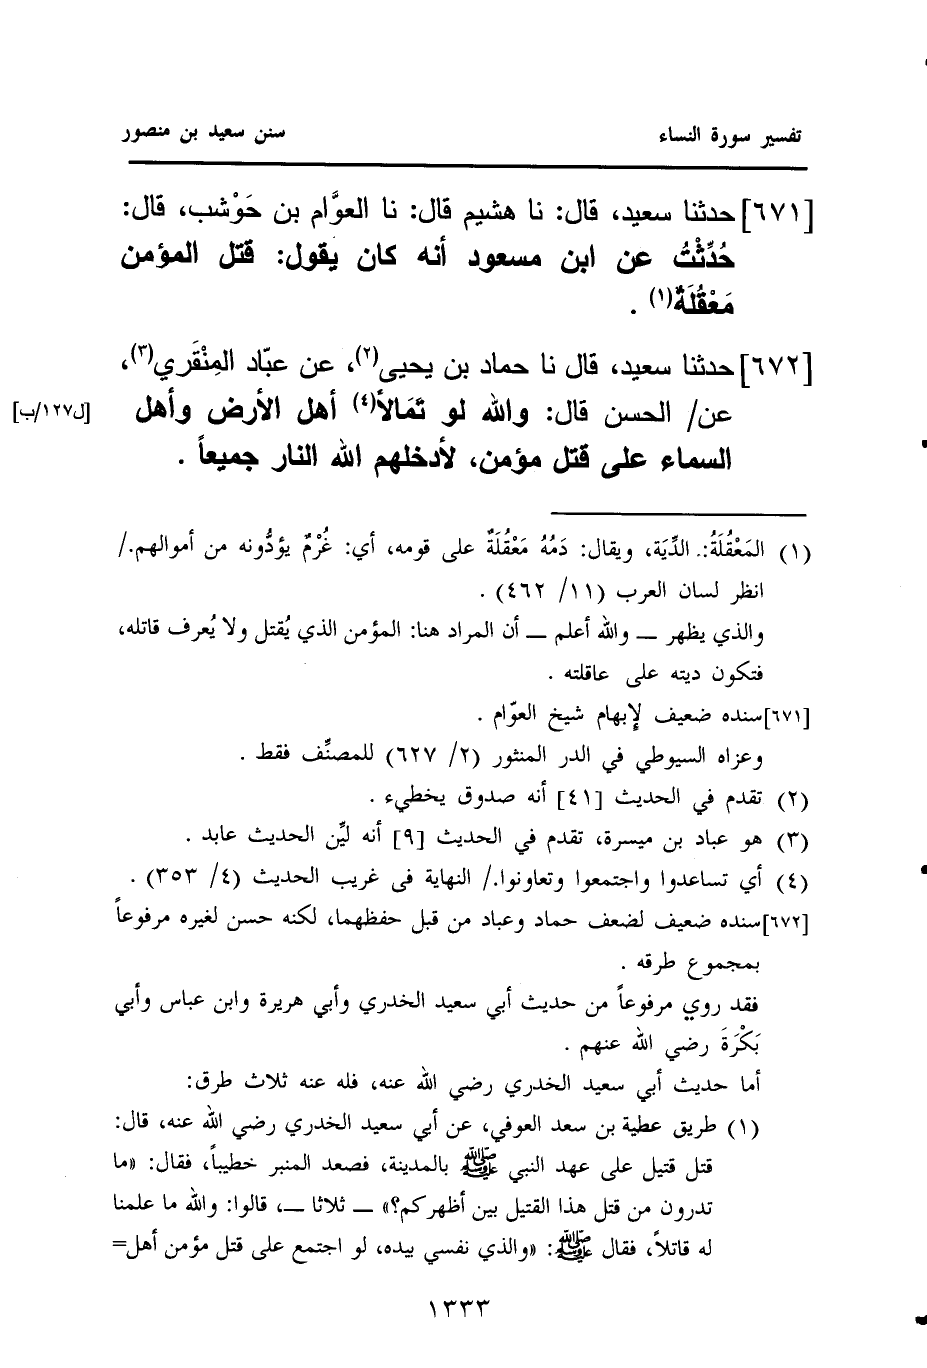 تفسير سورة النساء
سنن سعيد بن منصور
[٦٧١] حدثنا سعيد، قال: نا هشيم قال: نا العوَّام بن حَوْشب، قال:
حُدِّثْتُ عن ابن مسعود أنه كان يقول: قتل المؤمن
مَعْقُلَةٌ(١) .
[٦٧٢] حدثنا سعيد، قال نا حماد بن يحيى(٢)، عن عبّاد المِنْقَري(٣)،
عن/ الحسن قال: والله لو تَمَالأ(٤) أهل الأرض وأهل
[ل١٢٧/ب]
السماء على قتل مؤمن، لأدخلهم الله النار جميعاً .
(١) المَعْقُلَةُ: الدِّيَة، ويقال: دَمُهُ مَعْقُلَةٌ على قومه، أي: غُرْمٌ يؤدُّونه من أموالهم./
انظر لسان العرب (١١/ ٤٦٢) .
والذي يظهر ــ والله أعلم ــ أن المراد هنا: المؤمن الذي يُقتل ولا يُعرف قاتله،
فتكون ديته على عاقلته .
[٦٧١] سنده ضعيف لإبهام شيخ العوّام .
وعزاه السيوطي في الدر المنثور (٢/ ٦٢٧) للمصنِّف فقط .
(٢) تقدم في الحديث [٤١] أنه صدوق يخطيء .
(٣) هو عباد بن ميسرة، تقدم في الحديث [٩] أنه ليِّن الحديث عابد .
(٤) أي تساعدوا واجتمعوا وتعاونوا./ النهاية فى غريب الحديث (٤/ ٣٥٣) .
[٦٧٢] سنده ضعيف لضعف حماد وعباد من قبل حفظهما، لكنه حسن لغيره مرفوعاً
بمجموع طرقه .
فقد روي مرفوعاً من حديث أبي سعيد الخدري وأبي هريرة وابن عباس وأبي
بَكْرَةَ رضي الله عنهم .
أما حديث أبي سعيد الخدري رضي الله عنه، فله عنه ثلاث طرق:
(١) طريق عطية بن سعد العوفي، عن أبي سعيد الخدري رضي الله عنه، قال:
قتل قتيل على عهد النبي ﷺ بالمدينة، فصعد المنبر خطيباً، فقال: «ما
تدرون من قتل هذا القتيل بين أظهركم؟» ــ ثلاثا ــ، قالوا: والله ما علمنا
له قاتلاً، فقال ﷺ: «والذي نفسي بيده، لو اجتمع على قتل مؤمن أهل=
١٣٣٣